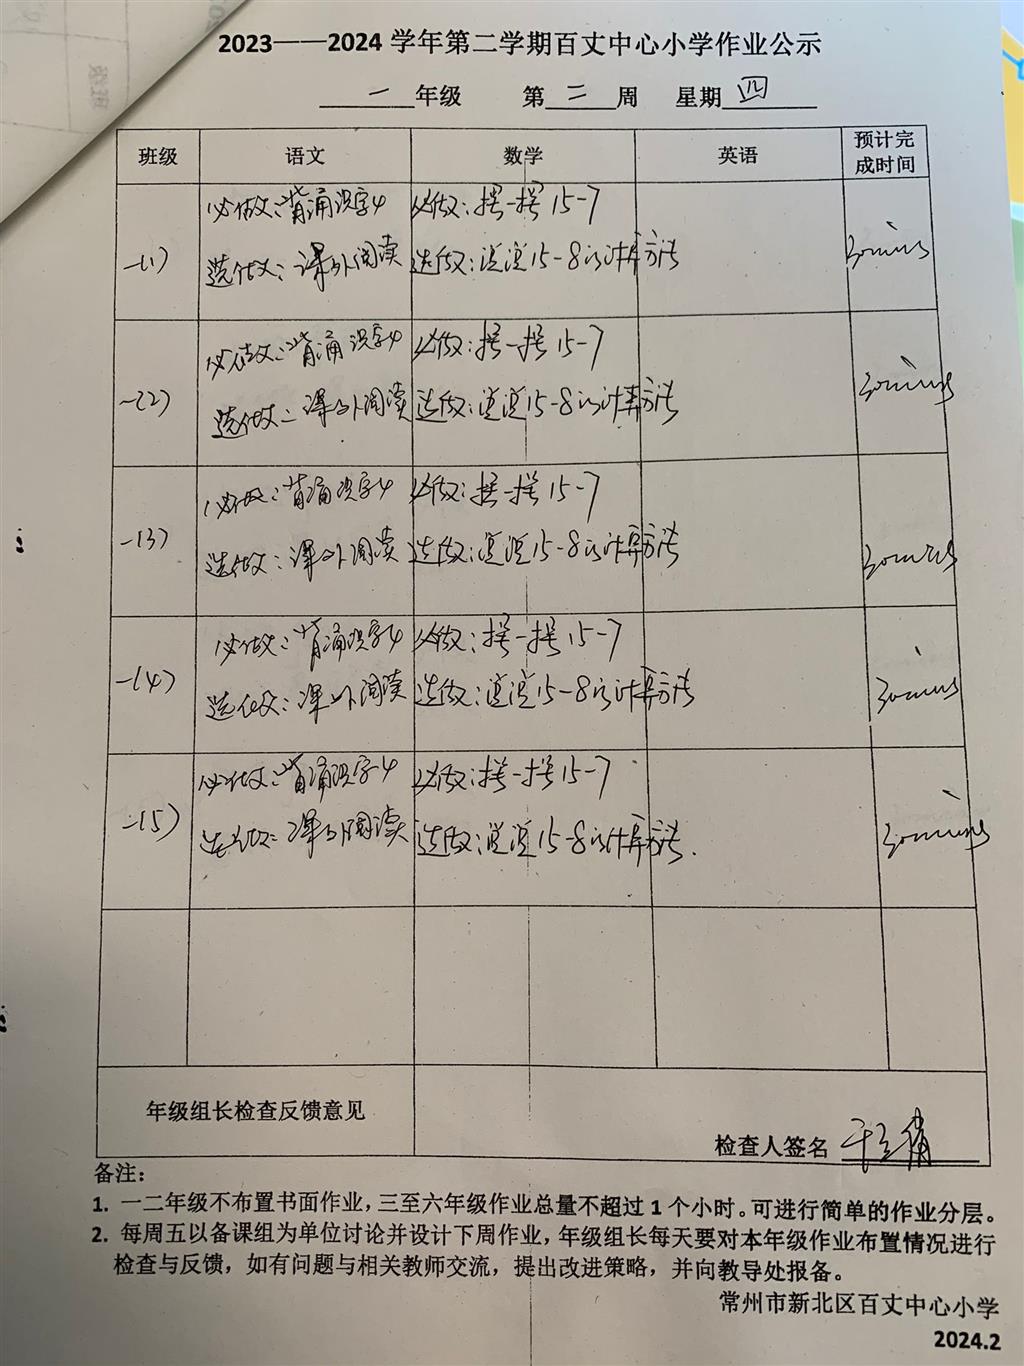 2023——2024 学年第二学期百丈中心小学作业公示
一 年级 第 二 周 星期 四
班级 语文 数学 英语 预计完成时间
一(1) 必做:背诵识字4 必做:摆一摆15-7 30mins
选做:课外阅读 选做:说说15-8的计算方法
一(2) 必做:背诵识字4 必做:摆一摆15-7 30mins
选做:课外阅读 选做:说说15-8的计算方法
一(3) 必做:背诵识字4 必做:摆一摆15-7 30mins
选做:课外阅读 选做:说说15-8的计算方法
一(4) 必做:背诵识字4 必做:摆一摆15-7 30mins
选做:课外阅读 选做:说说15-8的计算方法
一(5) 必做:背诵识字4 必做:摆一摆15-7 30mins
选做:课外阅读 选做:说说15-8的计算方法.
年级组长检查反馈意见
检查人签名
备注:
1. 一二年级不布置书面作业,三至六年级作业总量不超过 1 个小时。可进行简单的作业分层。
2. 每周五以备课组为单位讨论并设计下周作业,年级组长每天要对本年级作业布置情况进行
检查与反馈,如有问题与相关教师交流,提出改进策略,并向教导处报备。
常州市新北区百丈中心小学
2024.2